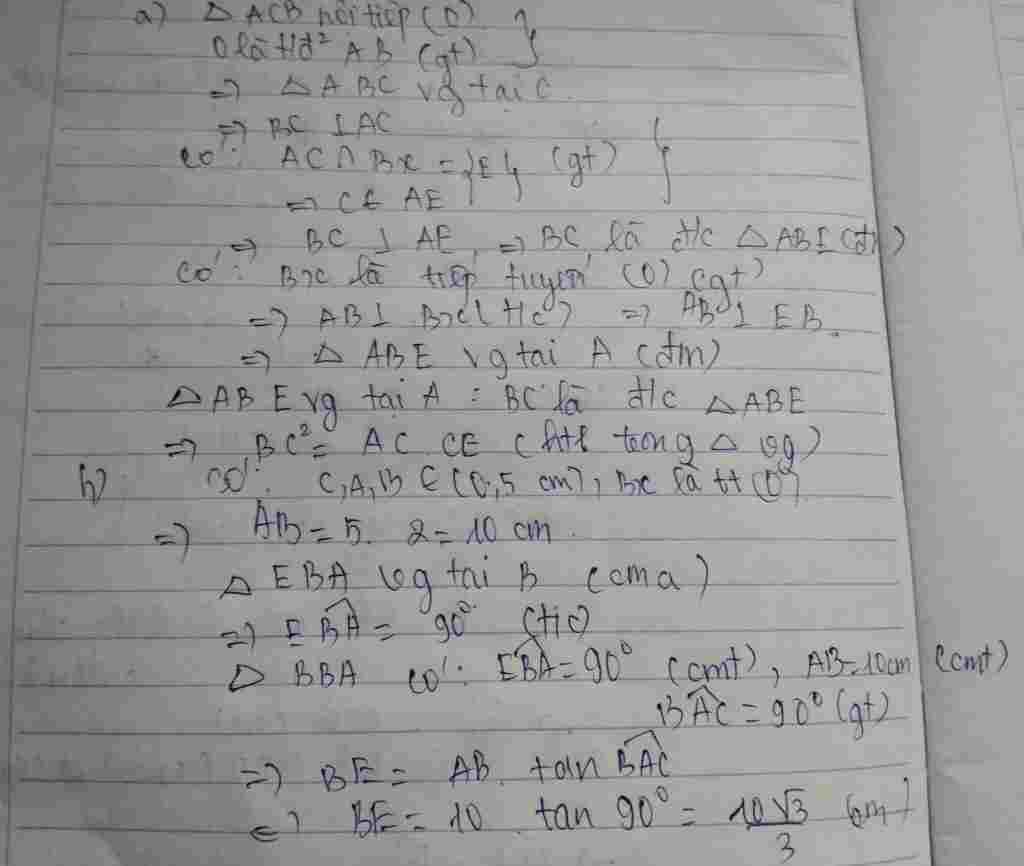 a) △ ACB nội tiếp (O) }
O là tđ² AB (gt)
=> △ ABC vg tại C.
=> BC ⊥ AC
có: AC ∩ Bx = {E} (gt) }
=> C ∈ AE
=> BC ⊥ AE => BC là đ/c △ ABE (đn)
có: Bx là tiếp tuyến (O) (gt)
=> AB ⊥ Bx (t/c) => AB ⊥ EB
=> △ ABE vg tại A (đm)
△ ABE vg tại A : BC là đ/c △ ABE
=> BC² = AC . CE (htl trong △ vg)
b) có: C, A, B ∈ (O, 5 cm), Bx là tt (O)
=> AB = 5 . 2 = 10 cm.
△ EBA vg tại B (cma)
=> EBA = 90° (t/c)
△ BBA có: EBA = 90° (cmt), AB = 10cm (cmt)
BAC = 90° (gt)
=> BE = AB . tan BAC
<=> BE = 10 . tan 90° = 10√3/3 (cm)